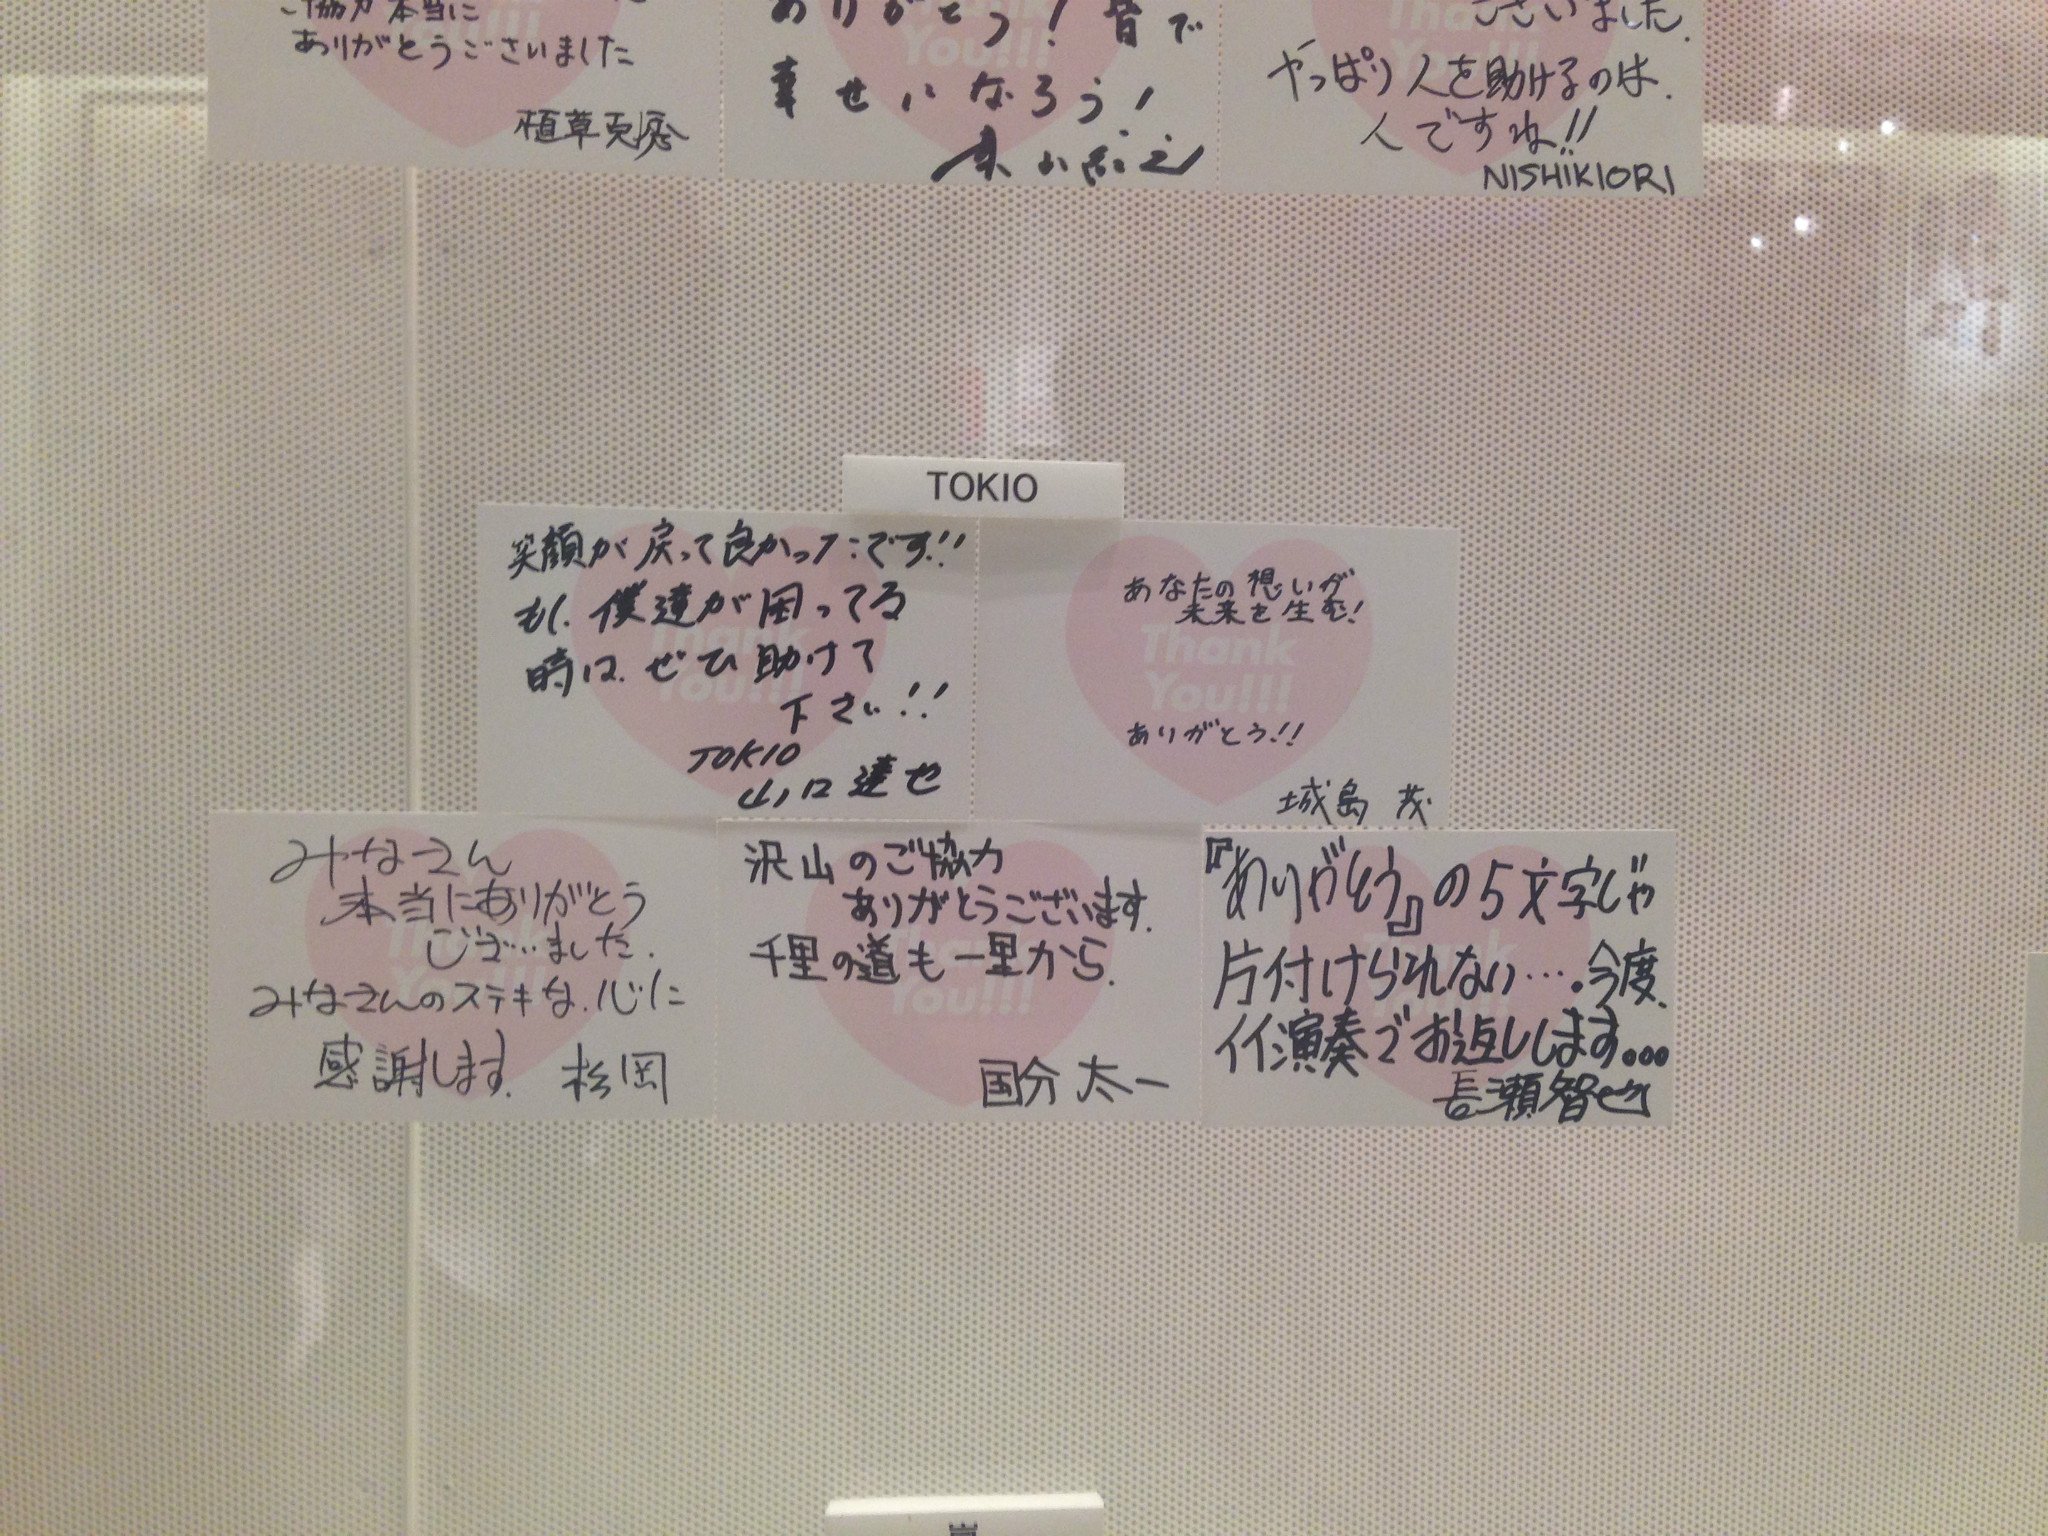 ご協力本当に
ありがとうございました
植草克秀
ありがとう！皆で
幸せになろう！
東山紀之
ございました。
やっぱり人を助けるのは、
人ですね!!
NISHIKIORI
TOKIO
笑顔が戻って良かったです!!
もし、僕達が困ってる
時は、ぜひ助けて
下さい!!
TOKIO
山口達也
あなたの想いが
未来を生む！
Thank
You!!!
ありがとう!!
城島 茂
みなさん
本当にありがとう
ございました。
みなさんのステキな心に
感謝します。 松岡
沢山のご協力
ありがとうございます。
千里の道も一里から。
You!!!
国分太一
『ありがとう』の5文字じゃ
片付けられない…。今度、
イイ演奏でお返しします...
長瀬智也
嵐